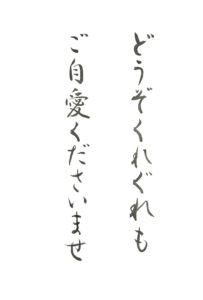 どうぞくれぐれも
ご自愛くださいませ